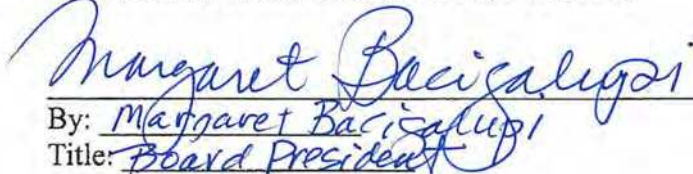 Margaret Bacigalupi
By: Margaret Bacigalupi
Title: Board President